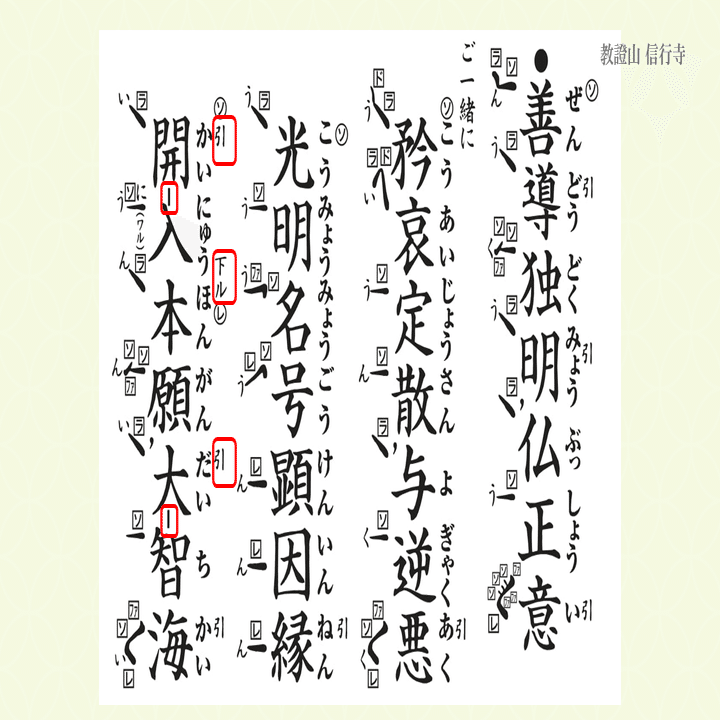 教證山 信行寺
●善導独明仏正意
ぜん どう どく みょう ぶっ しょう い
ご一緒に
矜哀定散与逆悪
こう あい じょう さん よ ぎゃく あく
光明名号顕因縁
こう みょう みょう ごう けん いん ねん
開入本願大智海
かい にゅう ほん がん だい ち かい